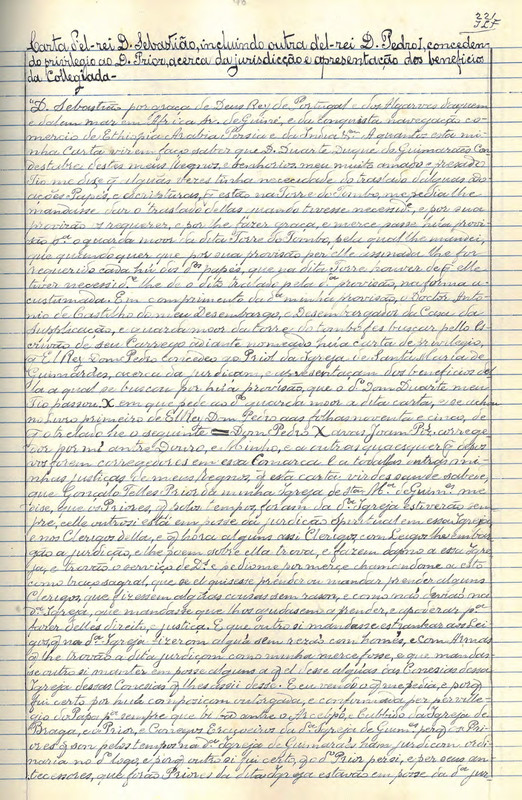 221
Carta, d'el-rei D. Sebastião, incluindo outra d'el-rei D. Pedro I, conceden-
do privilegio ao D. Prior, acerca da jurisdicção e apresentação dos beneficios
da Collegiada-
"D. Sebastião por graça de Deus Rey de Portugal e dos Algarves daquem
e dalem mar em Africa Sr. de Guiné, e da conquista navegação co-
mercio de Ethiopia Arabia Persia e da India A quantos esta mi-
nha Carta virem faço saber que D. Duarte Duque de Guimarães Con
destabre destes meus Regnos, e Senhorios meu muito amado e prezado
Tio me disse q algũas vezes tinha necessidade do traslado dalguas Do-
ações Papeis, e escripturas, q estão na Torre do Tombo, me pedia lhe
mandasse dar o traslado dellas quando tivesse necessidᵉ, e por sua
provisão os requerer, e por lhe fazer graça, e merce passe hũa provi-
são pᵃ o guarda moor da dita Torre do Tombo, pela qual lhe mandei,
que quando quer que por sua provisão per elle assinada lhe for
requerido cada hũ dos papeis, que na dita Torre houver de q elle
tiver necessidᵉ lhe de o dito traslado pela dᵗᵃ provisão, na forma a-
custumada. E em comprimento da dᵗᵃ minha provisão, o Doctor Anto-
nio de Castilho do meu Desembargo, e Desembargador da Casa da
Supplicação, e guarda moor da torre do tombo fes buscar pello Es-
crivão de seu Carrego adiante nomeado hũa carta de privilegio,
q El Rey Dom Pedro Concedeo ao Priol da Igreja de Santa Maria de
Guimarães, acerca da jurdicam, e apresentaçam dos beneficios del
la a qual se buscou por hũa provisão, que o dᵗᵒ Dom Duarte meu
Tio passou, X em que pede ao dᵗᵒ guarda moor a dita carta, e se achou
no Livro primeiro de El Rey Dom Pedro aas folhas noventa e cinco, de
q o treslado he o seguinte = Dom Pedro X a vos Joam Pĩz correge
dor por mĩ antre Douro, e Minho, e a outros quaesquer q depois
vos forem corregedores em essa Comarca e a todallas outras mi-
nhas justiças de meus Regnos, q esta carta virdes saude sabede,
que Gonçalo Telles Prior da minha Igreja de Stᵃ Mᵃ de Guimᵉˢ me
disse, que os Priores, q pelos tempos foram da dᵗᵃ Igreja estiverão sem
pre, e elle outrosi está em posse da jurdição spiritual em essa Igreja
e nos Clerigos della, e q hora alguns assi Clerigos, com Leigos lhe embar-
gão a jurdição, e lhe poem sobre ella trova, e fazem damno a essa Igre-
ja, e trovão o serviço de Dˢ. e pediome por merce
como traço sagral, que se el quisesse prender ou mandar prender alguns
Clerigos, que fizessem algũas cousas sem rason, e como não devião na
dᵗᵃ Igreja, que mandasse que lhos ajudassem a prender, e apoderar pᵃ
fazer delles direito, e justiça. E que outro si mandasse estranhar aos Lei
gos, q na dᵗᵃ Igreja fizerom algũa sem rezão com homẽs, e com Armas
q lhe trovão a dita jurdiçam como minha merce fosse, e que mandas-
se outro si manter em posse alguns a q el desse algũas das Conesias dessa
Igreja dessas Conesias q lhes assi desse. E eu vendo o q me pedia, e porq
fui certo por hũa composiçam outorgada, e confirmada per privile-
gio do Papa pᵃ sempre que antre o Arcebpo, e Cabbido da Igreja de
Braga, e o Prior, e Conegos da dᵗᵃ Igreja de Guimᵉˢ, porq os Pri-
ores q son pelos tempos na dᵗᵃ Igreja de Guimarães ham jurdicam ordi-
naria no dᵗᵒ logo, e porq outro si fui certo, q o dᵗᵒ Prior persi, e per seus an-
tecessores, que forão Priores da dita Igreja estavão em posse da dᵗᵃ jur-